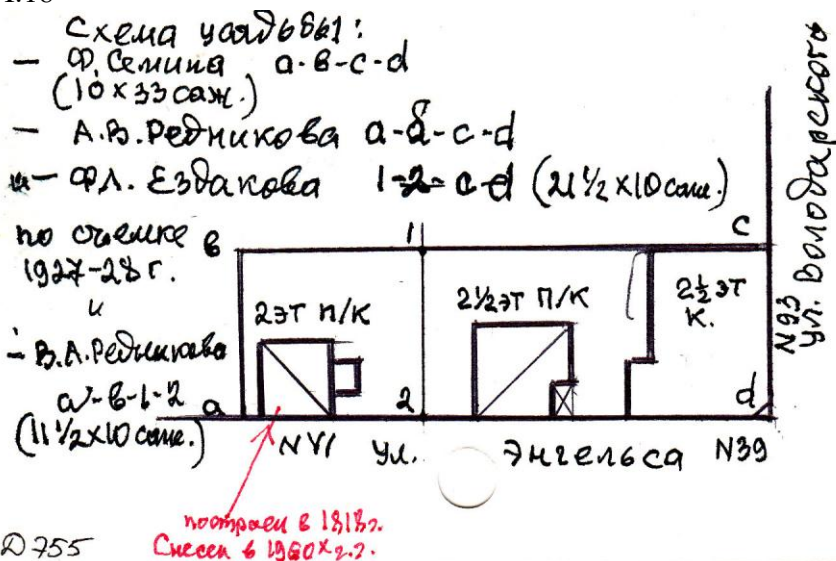 Схема усадьбы:
— Ф. Семина а-в-с-d
(10 х 33 саж.)
— А.В. Редникова а-в-с-d
— Ф.Л. Ездакова 1-2-с-d (21 1/2 х 10 саж.)
по съемке
1927-28 г.
и
- В.А. Редникова
а-в-1-2
(11 1/2 х 10 саж.)
в 1 с
2эт п/к 2 1/2 эт п/к 2 1/2 эт
к.
а 2 d
ул. Энгельса N39
N93
ул. Володарского
построен в 1818г.
Снесен в 1960х г.г.
D 755